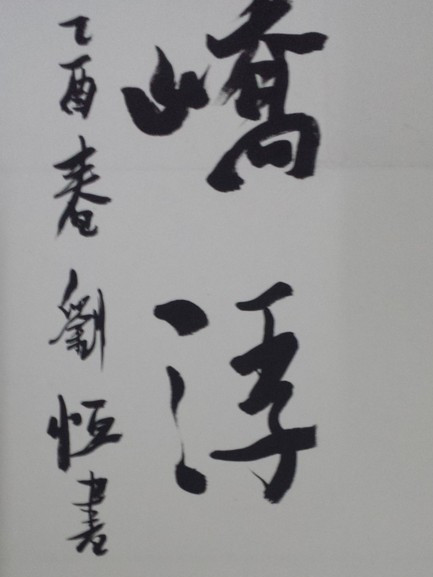 嶠浮
乙酉春劉恒書